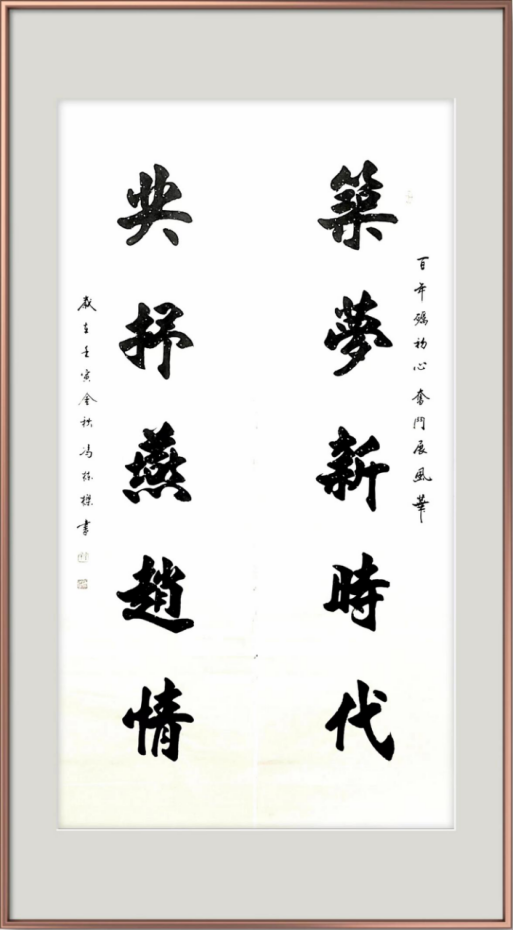 百年礪初心 奮鬥展風華
築夢新時代
共抒燕趙情
歲在壬寅金秋 冯 書